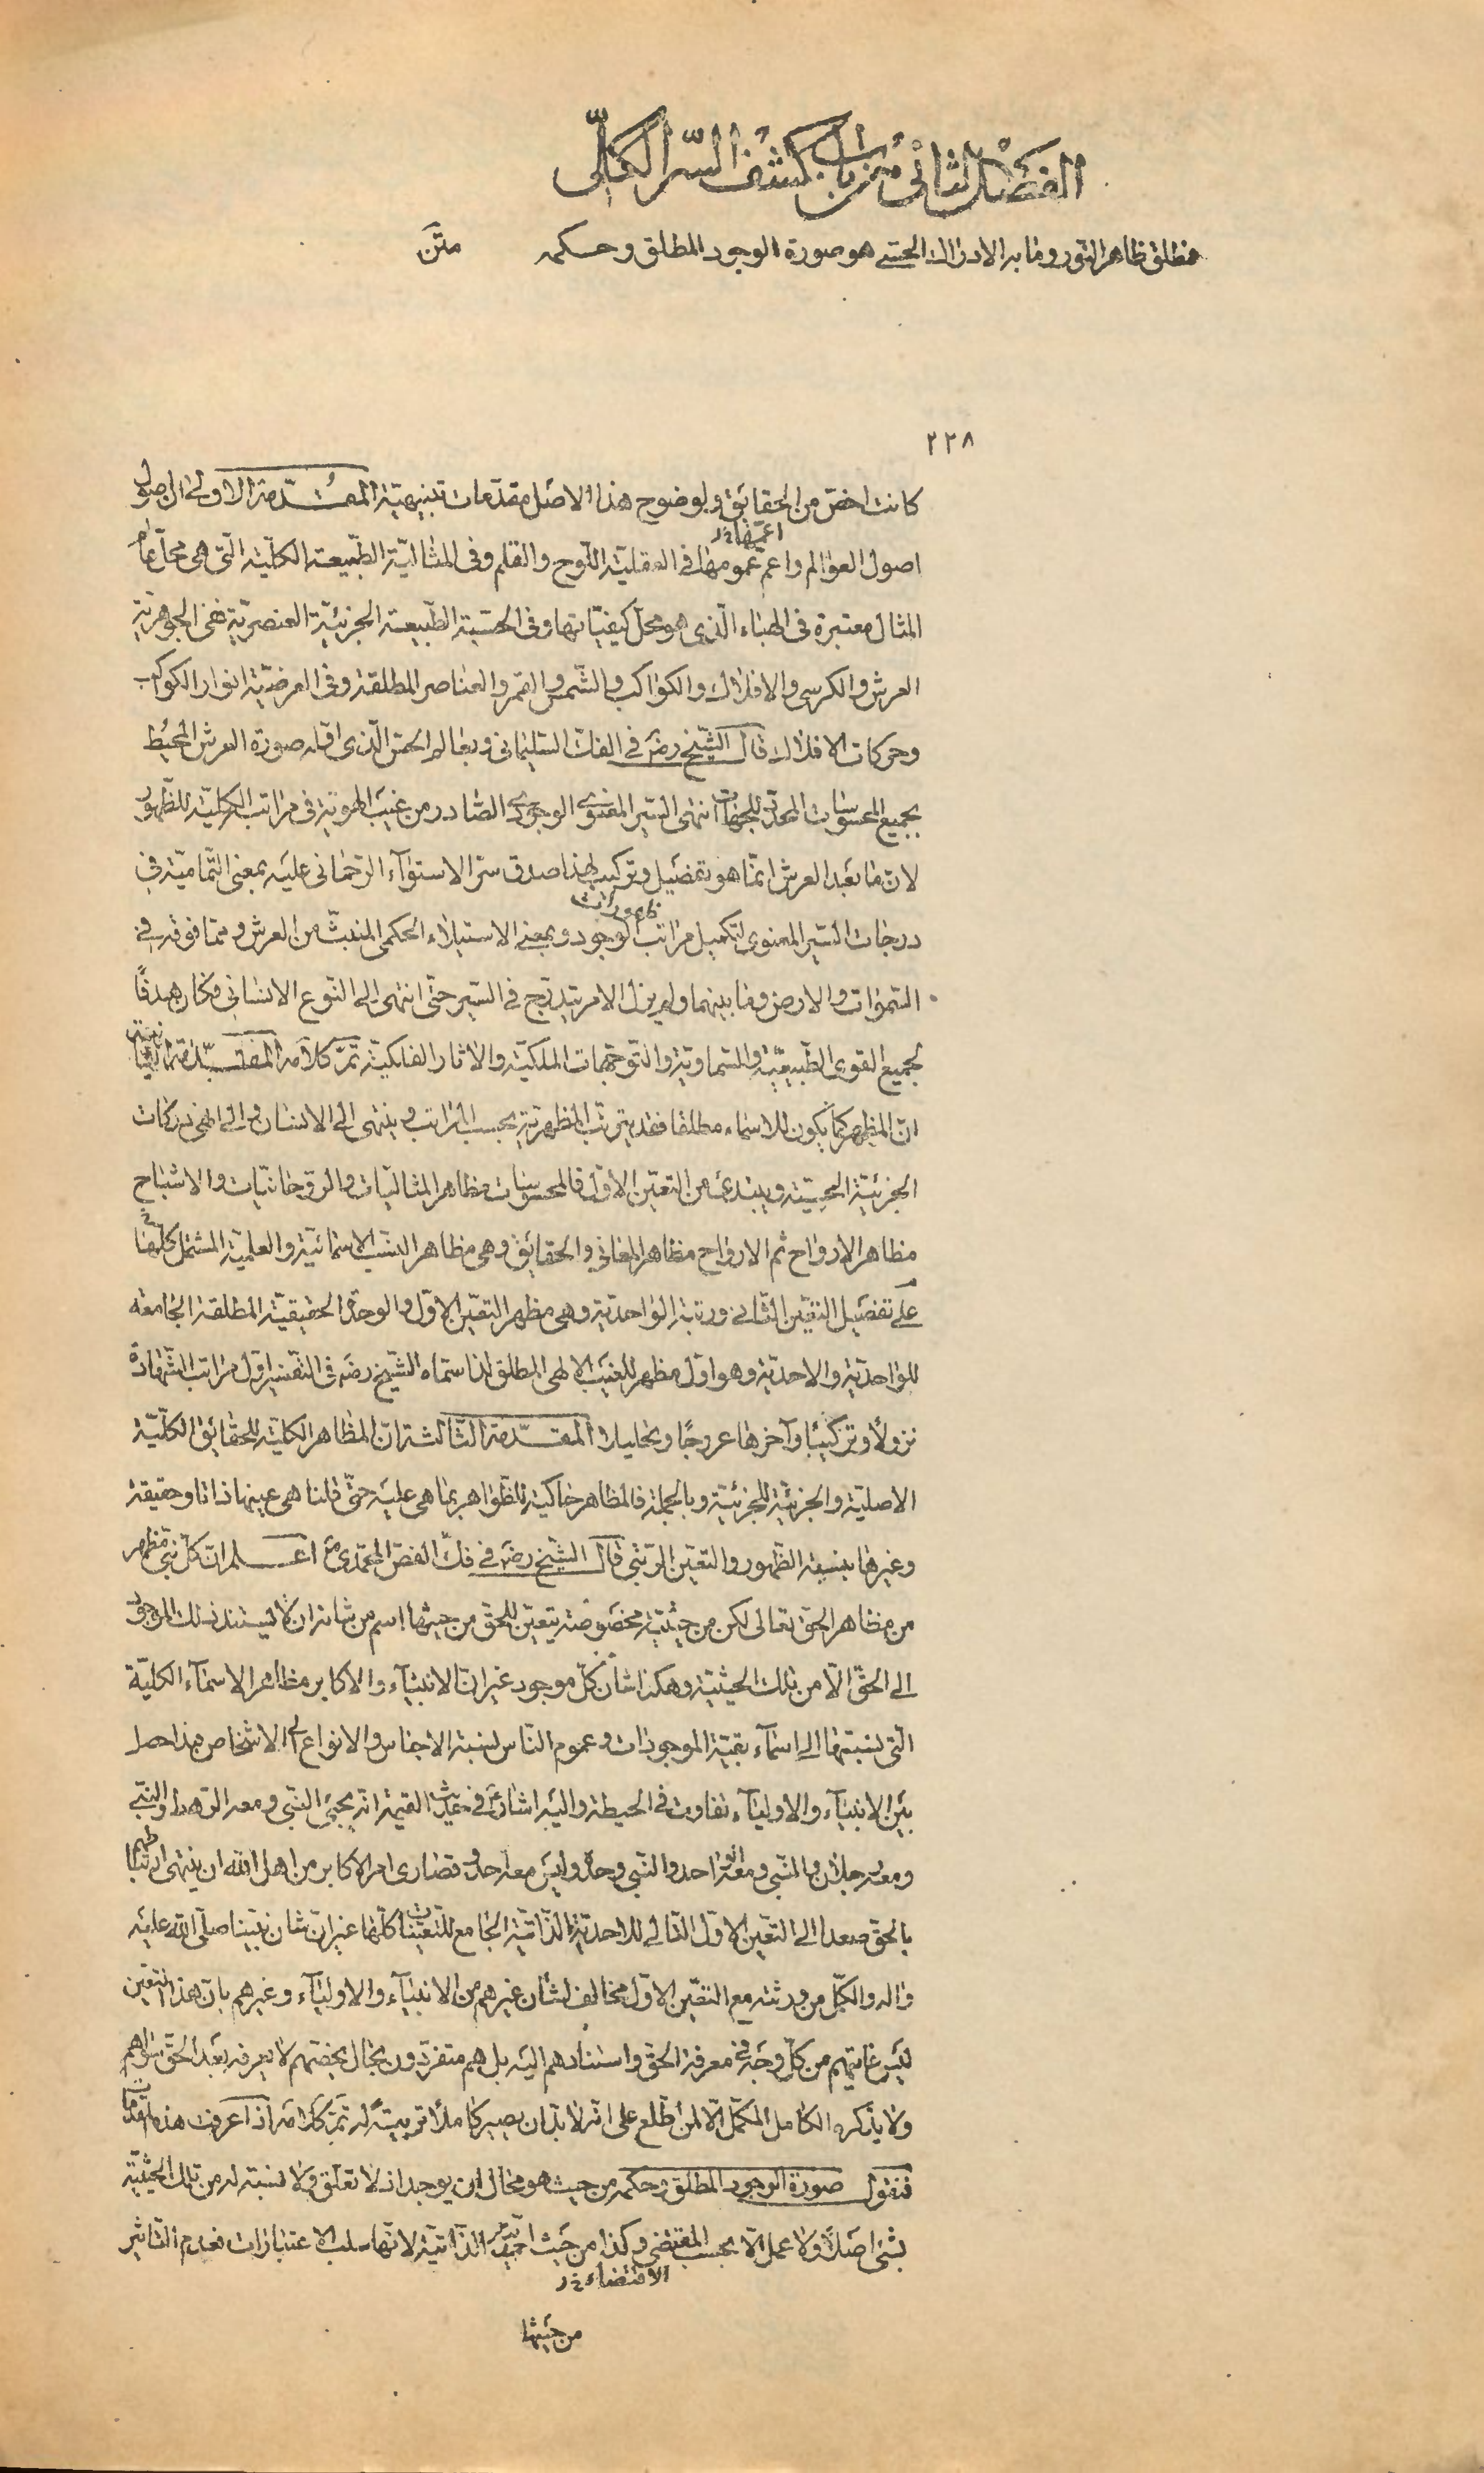 الفصل الثانى من باب كشف السّر الكلّى
فمطلق ظاهر النور وما به الادراك الحسّى هو صورة الوجود المطلق وحكمه متن
٢٢٨
كانت اخصّ من الحقائق ولوضوح هذا الاصل مقدّمات تنبيهيّة المقدّمة الاولى ان اصول
اعمّها خ‍ر
اصول العوالم واعم عمومها فى العقليّة اللّوح والقلم وفى المثاليّة الطّبيعة الكليّة الّتى هى محلّ عام
المثال معتبرة فى الهباء الّذى هو محلّ كيفيّاتها وفى الحسّية الطّبيعة الجزئيّة العنصريّة ففى الجوهريّة
العرش والكرسى والافلاك والكواكب والشّمس والقمر والعناصر المطلقة وفى العرضيّة انوار الكواكب
وحركات الافلاك قال الشّيخ رضه فى الفكّ السّليمانى وبعالم الحسّ الّذى اوّله صورة العرش المحيط
بجميع المحسوسات المحدّد للجهات انتهى السّير المعنوى الوجودى الصّادر من غيب الهويّة فى مراتب الكليّة للظّهور
لانّ ما بعد العرش انّما هو تفصيل وتركيب لهذا صدق سرّ الاستوآء الرّحمانى عليه بمعنى التّماميّة فى
ظهورات
درجات السّير المعنوى لتكميل مراتب الوجود وبمعنى الاستيلاء الحكمى المنبثّ من العرش وممّا فوقه فى
السّموات والارض وما بينهما ولم يزل الامر يتدرّج فى السّير حتّى انتهى الى النّوع الانسانى فكان هدفًا
لجميع القوى الطّبيعيّة والسّماويّة والتّوجّهات الملكيّة والاثار الفلكيّة تمّ كلامه المقدّمة الثّانية
انّ المظهر كما يكون للاسماء مطلقا فقد يترتّب المظهريّة بحسب المراتب وينتهى الى الانسان والى مدركات
الجزئيّة الحسّيّة ويبتدئ من التعيّن الاوّل فالمحسوسات مظاهر المثاليّات والرّوحانيّات والاشباح
مظاهر الارواح ثم الارواح مظاهر المعانى والحقائق وهى مظاهر النّسب الاسمائيّة والعلميّة المشتمل كلّها
على تفصيل التعيّن الثّانى ورتبة الواحديّة وهى مظهر التعيّن الاوّل والوحدة الحقيقيّة المطلقة الجامعه
للواحديّة والاحديّة وهو اوّل مظهر للغيب الالهى المطلق لذا سمّاه الشّيخ رضه فى التّفسير اوّل مراتب الشّهادة
نزولاً وتركيبًا وآخرها عروجًا وتحليلاً المقدّمة الثّالثة انّ المظاهر الكليّة للحقائق الكلّيّة
الاصليّة والجزئيّة للجزئيّة وبالجملة فالمظاهر حاكية للظّواهر بما هى عليه حتّى قلنا هى عينها ذاتا وحقيقة
وغيرها بنسبة الظّهور والتعيّن الرّتبى قال الشّيخ رضه فى فكّ الفصّ المحمّدى ص اعلم انّ كلّ نبىّ مظهر
من مظاهر الحقّ تعالى لكن من حيثيّة مخصوصة يتعيّن للحقّ من حيثها اسم من شأنه ان لا يستند ذلك الموجود
الى الحقّ الّا من تلك الحيثيّة وهكذا شأن كلّ موجود غير انّ الانبيآء والاكابر مظاهر الاسمآء الكليّة
الّتى نسبتها الى اسمآء بقيّة الموجودات وعموم النّاس نسبة الاجناس والانواع الى الاشخاص فبهذا حصل
بين الانبيآء والاوليآء تفاوت فى الحيطة واليه اشارت فى حديث القيمة انه يجيئ النبّى ومعه الرّهط والنّبى
ومعه رجلان والنّبى ومعه الواحد والنّبى وحده وليس معه احد وقصارى امر الاكابر من اهل الله ان ينتهى ارتباطهم
بالحقّ صعدا الى التعيّن الاوّل التّالى للاحديّة الذّاتيّة الجامع للتّعيّنات كلّها غير انّ شان نبيّنا صلّى الله عليه
واله والكمّل من ورثته مع التعيّن الاوّل مخالف لشأن غيرهم من الانبيآء والاوليآء وغيرهم بانّ هذا التعيّن
ليس غايتهم من كلّ وجه فى معرفة الحقّ واستنادهم اليه بل هم متفرّدون بحال يخصّهم لا يعرفه بعد الحقّ سواهم
ولا يذكره الكامل المكمّل الّا لمن اطّلع على انّه لا بدّ ان يصير كاملا تربيتًه له تمّ كلامه اذا عرفت هذه المقدّمات
فنقول صورة الوجود المطلق وحكمه من حيث هو محال ان يوجد اذ لا تعلّق ولا نسبته له من تلك الحيثيّة
بشئ اصلاً ولا عمل الّا بحسب المقتضى وكذا من حيث احديّته الذّاتيّة لانّها سلب الاعتبارات فعدم التّاثير
الاقتضاء خ‍ر
من حيثها